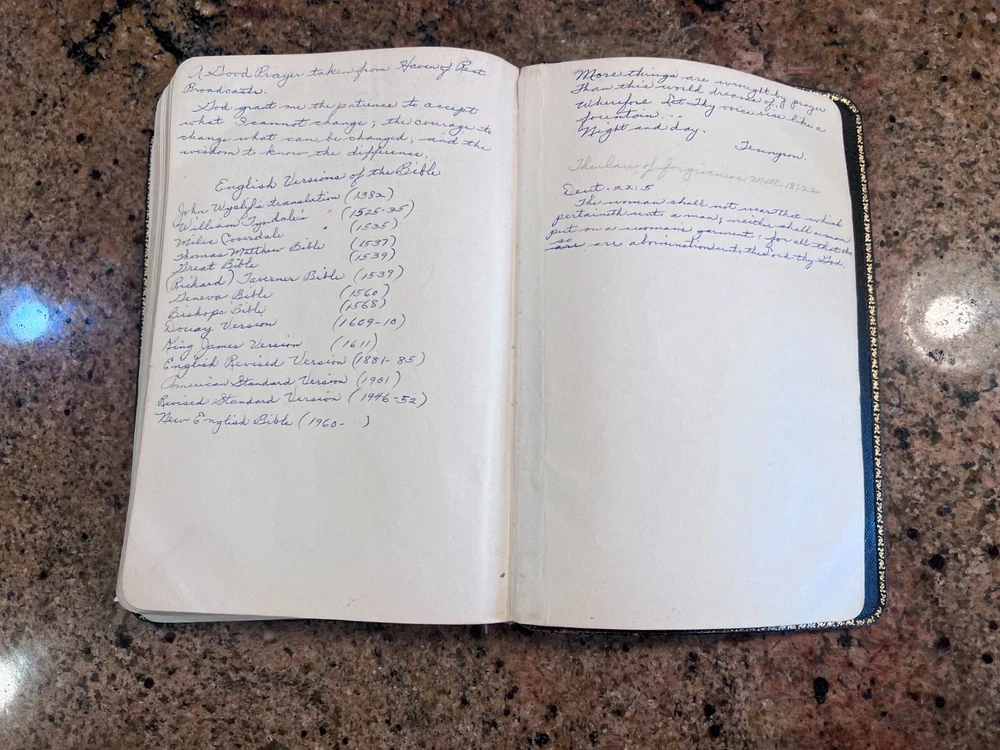 A Good Prayer taken from Haven of Rest
Broadcasts.
God grant me the patience to accept
what I cannot change; the courage to
change what can be changed, and the
wisdom to know the difference.
English Versions of the Bible
John Wyclif's translation (1382)
William Tyndale's " (1525-35)
Miles Coverdale " (1535)
Thomas Matthew Bible (1537)
Great Bible (1539)
(Richard) Taverner Bible (1539)
Geneva Bible (1560)
Bishops Bible (1568)
Douay Version (1609-10)
King James Version (1611)
English Revised Version (1881-85)
American Standard Version (1901)
Revised Standard Version (1946-52)
New English Bible (1960- )
More things are wrought by prayer
Than this world dreams of.
Wherefore let Thy voice rise like a
fountain...
Night and day.
Tennyson.
The law of forgiveness Matt. 18:22
Deut. 22:5
The woman shall not wear that which
pertaineth unto a man; neither shall a man
put on a womans garment: for all that do
so
are are abomination unto the Lord thy God.